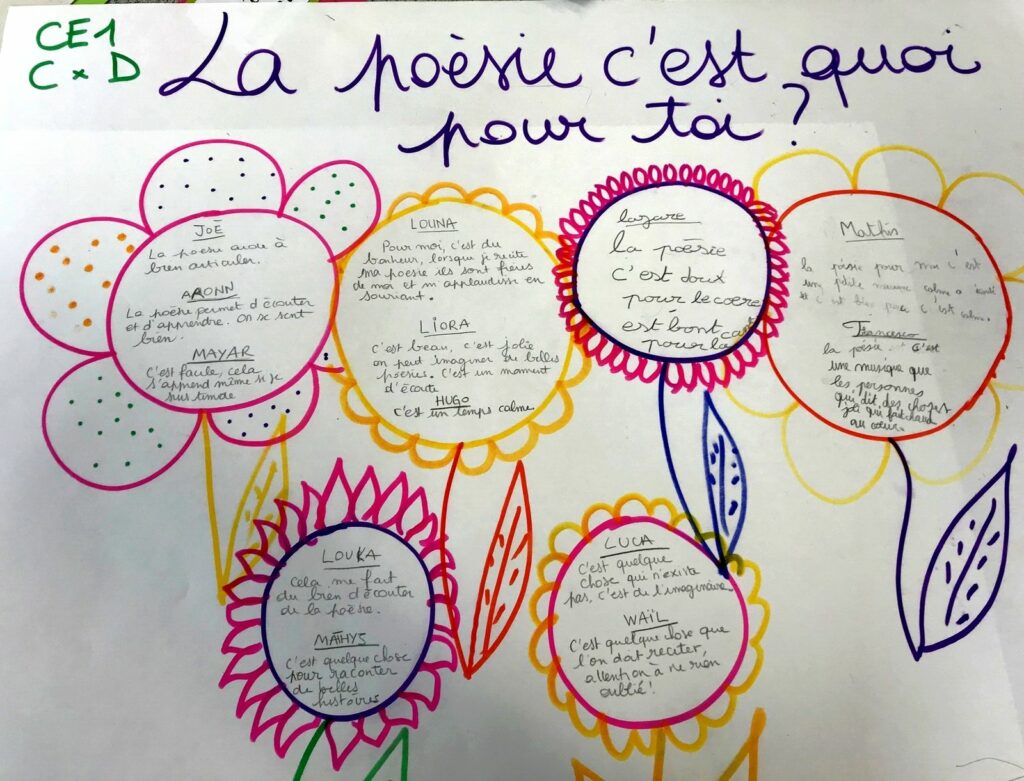 CE1
C x D
La poèsie c'est quoi
pour toi ?
JOÉ
La poésie aide à
bien articuler.
ARONN
La poésie permet d'écouter
et d'apprendre. On se sent
bien.
MAYAR
C'est facile, cela
s'apprend même si je
suis timide
LOUNA
Pour moi, c'est du
bonheur, lorsque je récite
ma poésie ils sont fiers
de moi et m'applaudisse en
souriant.
LIORA
C'est beau, c'est jolie
on peut imaginer de belles
poésies. C'est un moment
d'écoute
HUGO
C'est un temps calme
lazare
la poésie
c'est doux
pour le coere
est bont
pour la
Mathis
la poésie pour moi c'est
une petite musique calme a
c'est calme.
Francesco
la poésie : c'est
une musique que
les personnes
qui dit des choses
au cœur.
LOUKA
Cela me fait
du bien d'écouter
de la poèsie.
MATHYS
C'est quelque chose
pour raconter
de belles
histoires
LUCA
C'est quelque
chose qui n'existe
pas, c'est de l'imaginaire.
WAÏL
C'est quelque chose que
l'on doit reciter,
attention à ne rien
oublié !